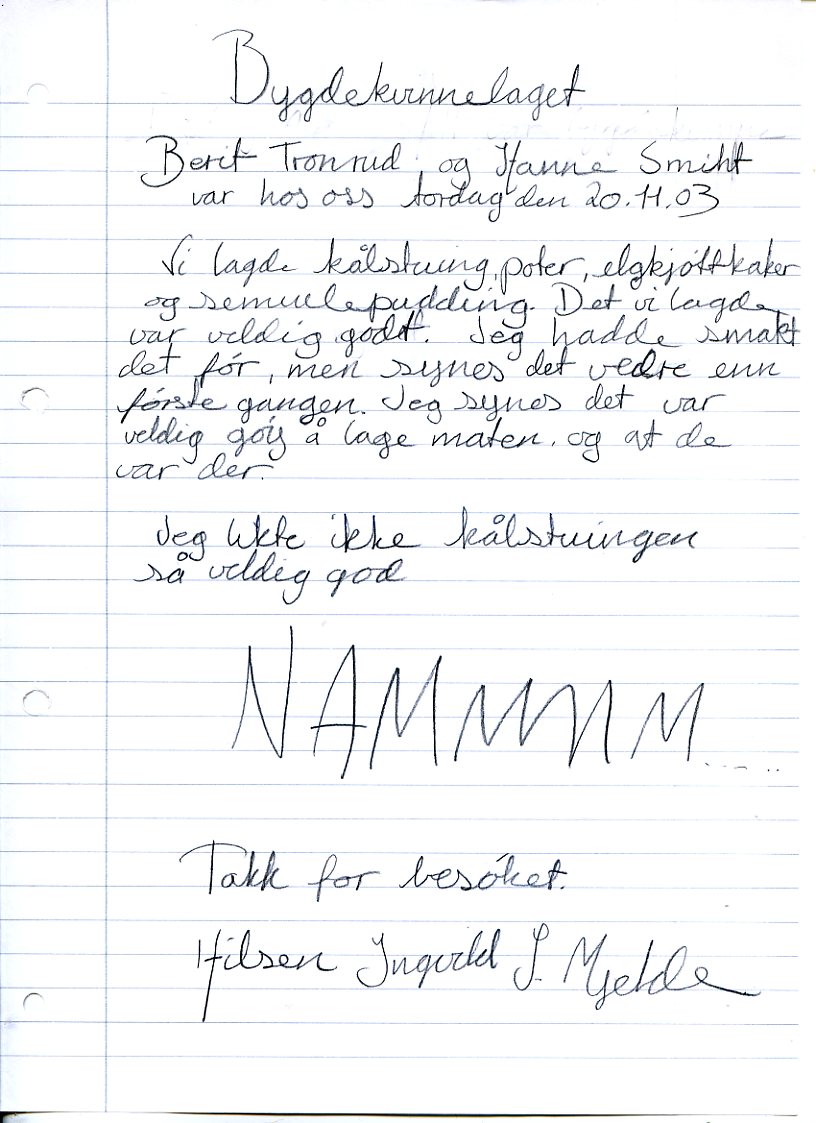 Bygdekvinnelaget
Berit Tronrud og Hanne Smiht
var hos oss tordag den 20.11.03
Vi lagde kålstuing, poter, elgkjøttkaker
og semulepudding. Det vi lagde
var veldig godt. Jeg hadde smakt
det før, men synes det vedre enn
første gangen. Jeg synes det var
veldig gøy å lage maten. og at de
var der.
Jeg likte ikke kålstuingen
så veldig god
NAMMMM.....
Takk for besøket.
Hilsen Ingvild S. Mjelde